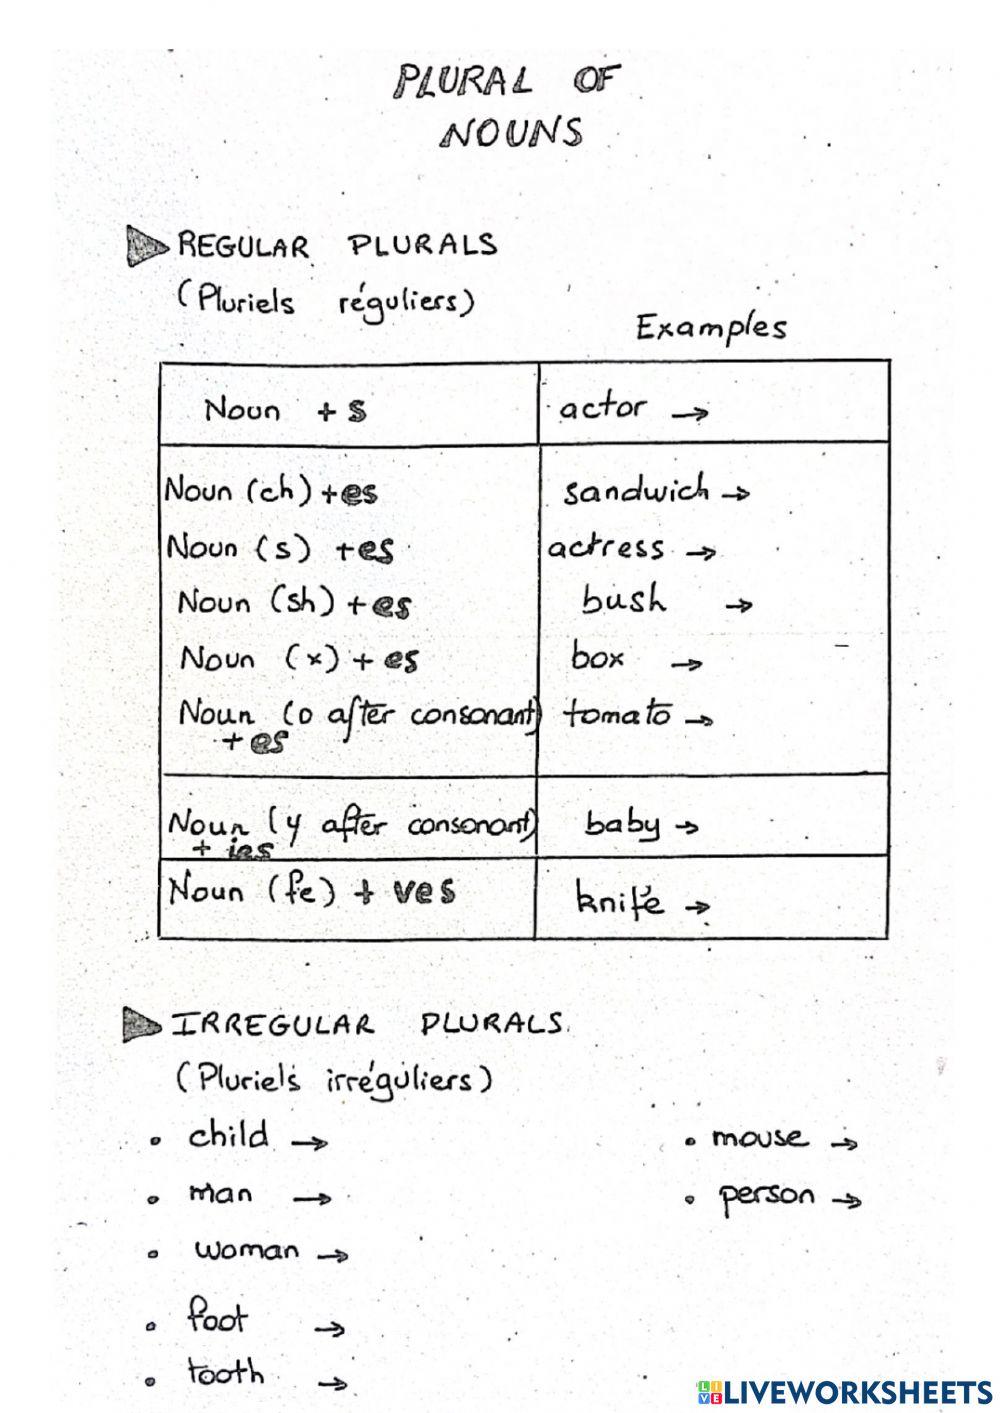 PLURAL OF
NOUNS
REGULAR PLURALS
(Pluriels réguliers)
Examples
Noun + s
actor →
Noun (ch) + es
sandwich →
Noun (s) + es
actress →
Noun (sh) + es
bush →
Noun (x) + es
box →
Noun (o after consonant)
+ es
tomato →
Noun (y after consonant)
+ ies
baby →
Noun (fe) + ves
knife →
IRREGULAR PLURALS
(Pluriels irréguliers)
• child →
• mouse →
• man →
• person →
• woman →
• foot →
• tooth →
LIVE LIVEWORKSHEETS